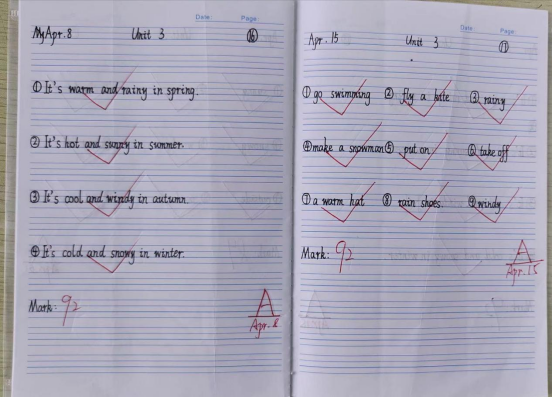 Date: Page:
MyApr.8 Unit 3 ⑯
① It's warm and rainy in spring.
② It's hot and sunny in summer.
③ It's cool and windy in autumn.
④ It's cold and snowy in winter.
Mark: 92 A
Apr. 8
Date: Page:
Apr. 15 Unit 3 ⑰
① go swimming ② fly a kite ③ rainy
④ make a snowman ⑤ put on ⑥ take off
⑦ a warm hat ⑧ rain shoes. ⑨ windy
Mark: 92 A
Apr. 15